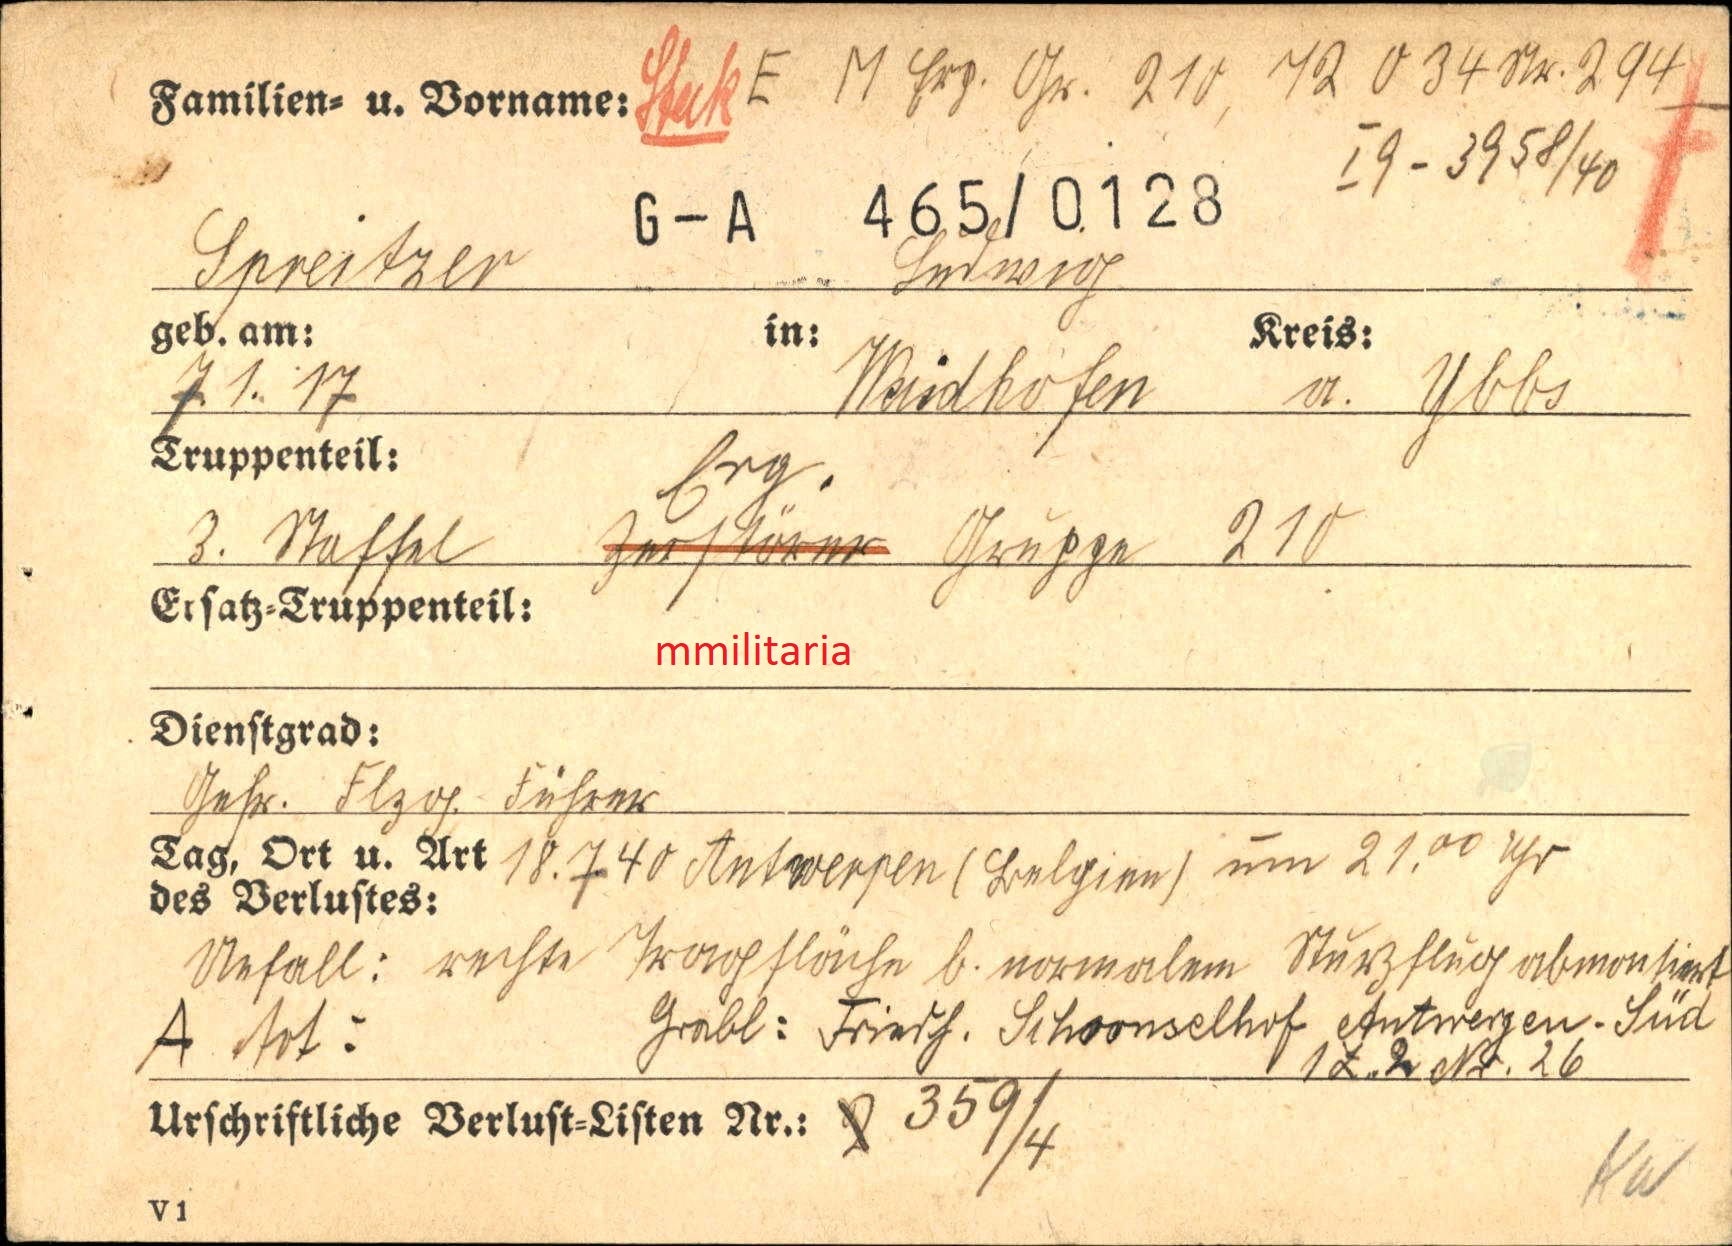 Familien- u. Vorname: E M Erg. Gr. 210, 72 0 34 Nr. 294
I 9 - 3958/40
G-A 465/0128
Spreitzer Ludwig
geb. am: in: Kreis:
7.1.17 Waidhofen a. Ybbs
Truppenteil:
Erg.
3. Staffel Zerstörer Gruppe 210
Ersatz-Truppenteil:
mmilitaria
Dienstgrad:
Gefr. Flzg. Führer
Tag, Ort u. Art 18.7.40 Antwerpen (Belgien) um 21.00 Uhr
des Verlustes:
Unfall: rechte Tragfläche b. normalem Sturzflug abmontiert
A tot: Grabl: Friedh. Schoonselhof Antwerpen-Süd
1 Z. 2 Nr. 26
Urschriftliche Verlust-Listen Nr.: 359/4
V 1